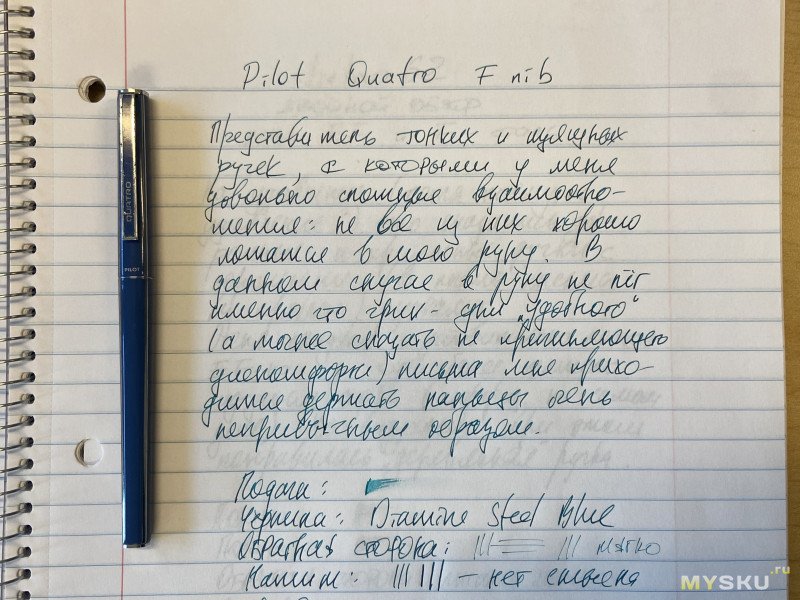 Pilot Quatro F nib
Представитель тонких и изящных
ручек, с которыми у меня
довольно сложные взаимоотно-
шения: не все из них хорошо
ложатся в мою руку. В
данном случае в руку не лёг
именно что грип - для „удобного“
(а точнее сказать не причиняющего
дискомфорта) письма мне прихо-
дится держать пальцы очень
непривычным образом.
Подача:
Чернила: Diamine Steel Blue
Обратная сторона: мягко
Капли: — нет смысла
QUATRO
PILOT
MYSKU.ru